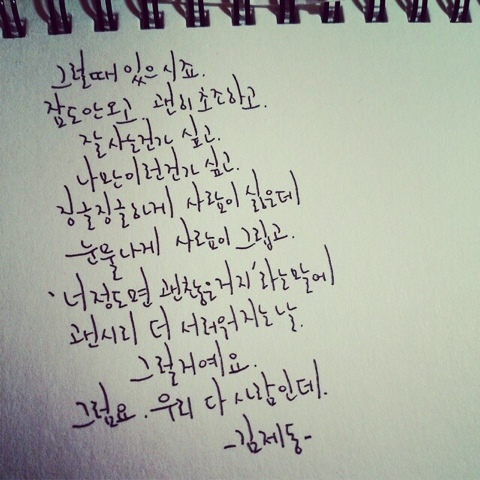 그럴때 있으시죠.
잠도안오고, 괜히초조하고.
잘 사는건가 싶고.
나만이런건가 싶고.
징글징글하게 사람이 싫은데
눈물나게 사람이 그립고.
'너정도면 괜찮은거지'라는말에
괜시리 더 서러워지는날.
그럴거예요.
그럼요. 우리 다 사람인데.
-김제동-